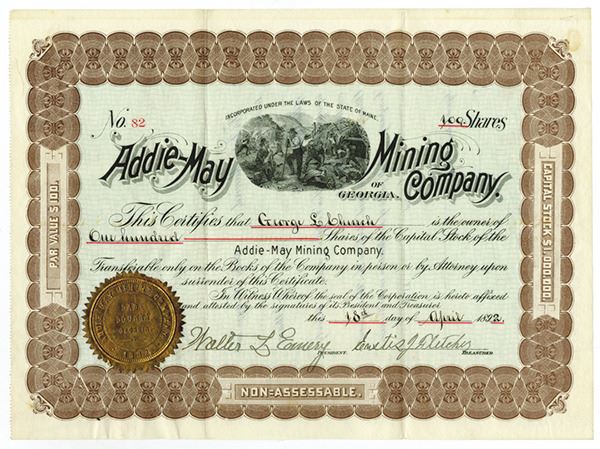 INCORPORATED UNDER THE LAWS OF THE STATE OF MAINE.
No. 82
100 Shares
Addie-May Mining Company.
OF GEORGIA.
PAR VALUE $100.
CAPITAL STOCK $1,000,000.
This Certifies that George L Church is the owner of
One hundred Shares of the Capital Stock of the
Addie-May Mining Company.
Transferable only on the Books of the Company in person or by Attorney upon
surrender of this Certificate.
In Witness Whereof the seal of the Corporation is hereto affixed
and attested by the signatures of its President and Treasurer
this 18th day of April 1892
Walter L Emery Curtis J Fletcher
PRESIDENT. TREASURER
NON-ASSESSABLE.